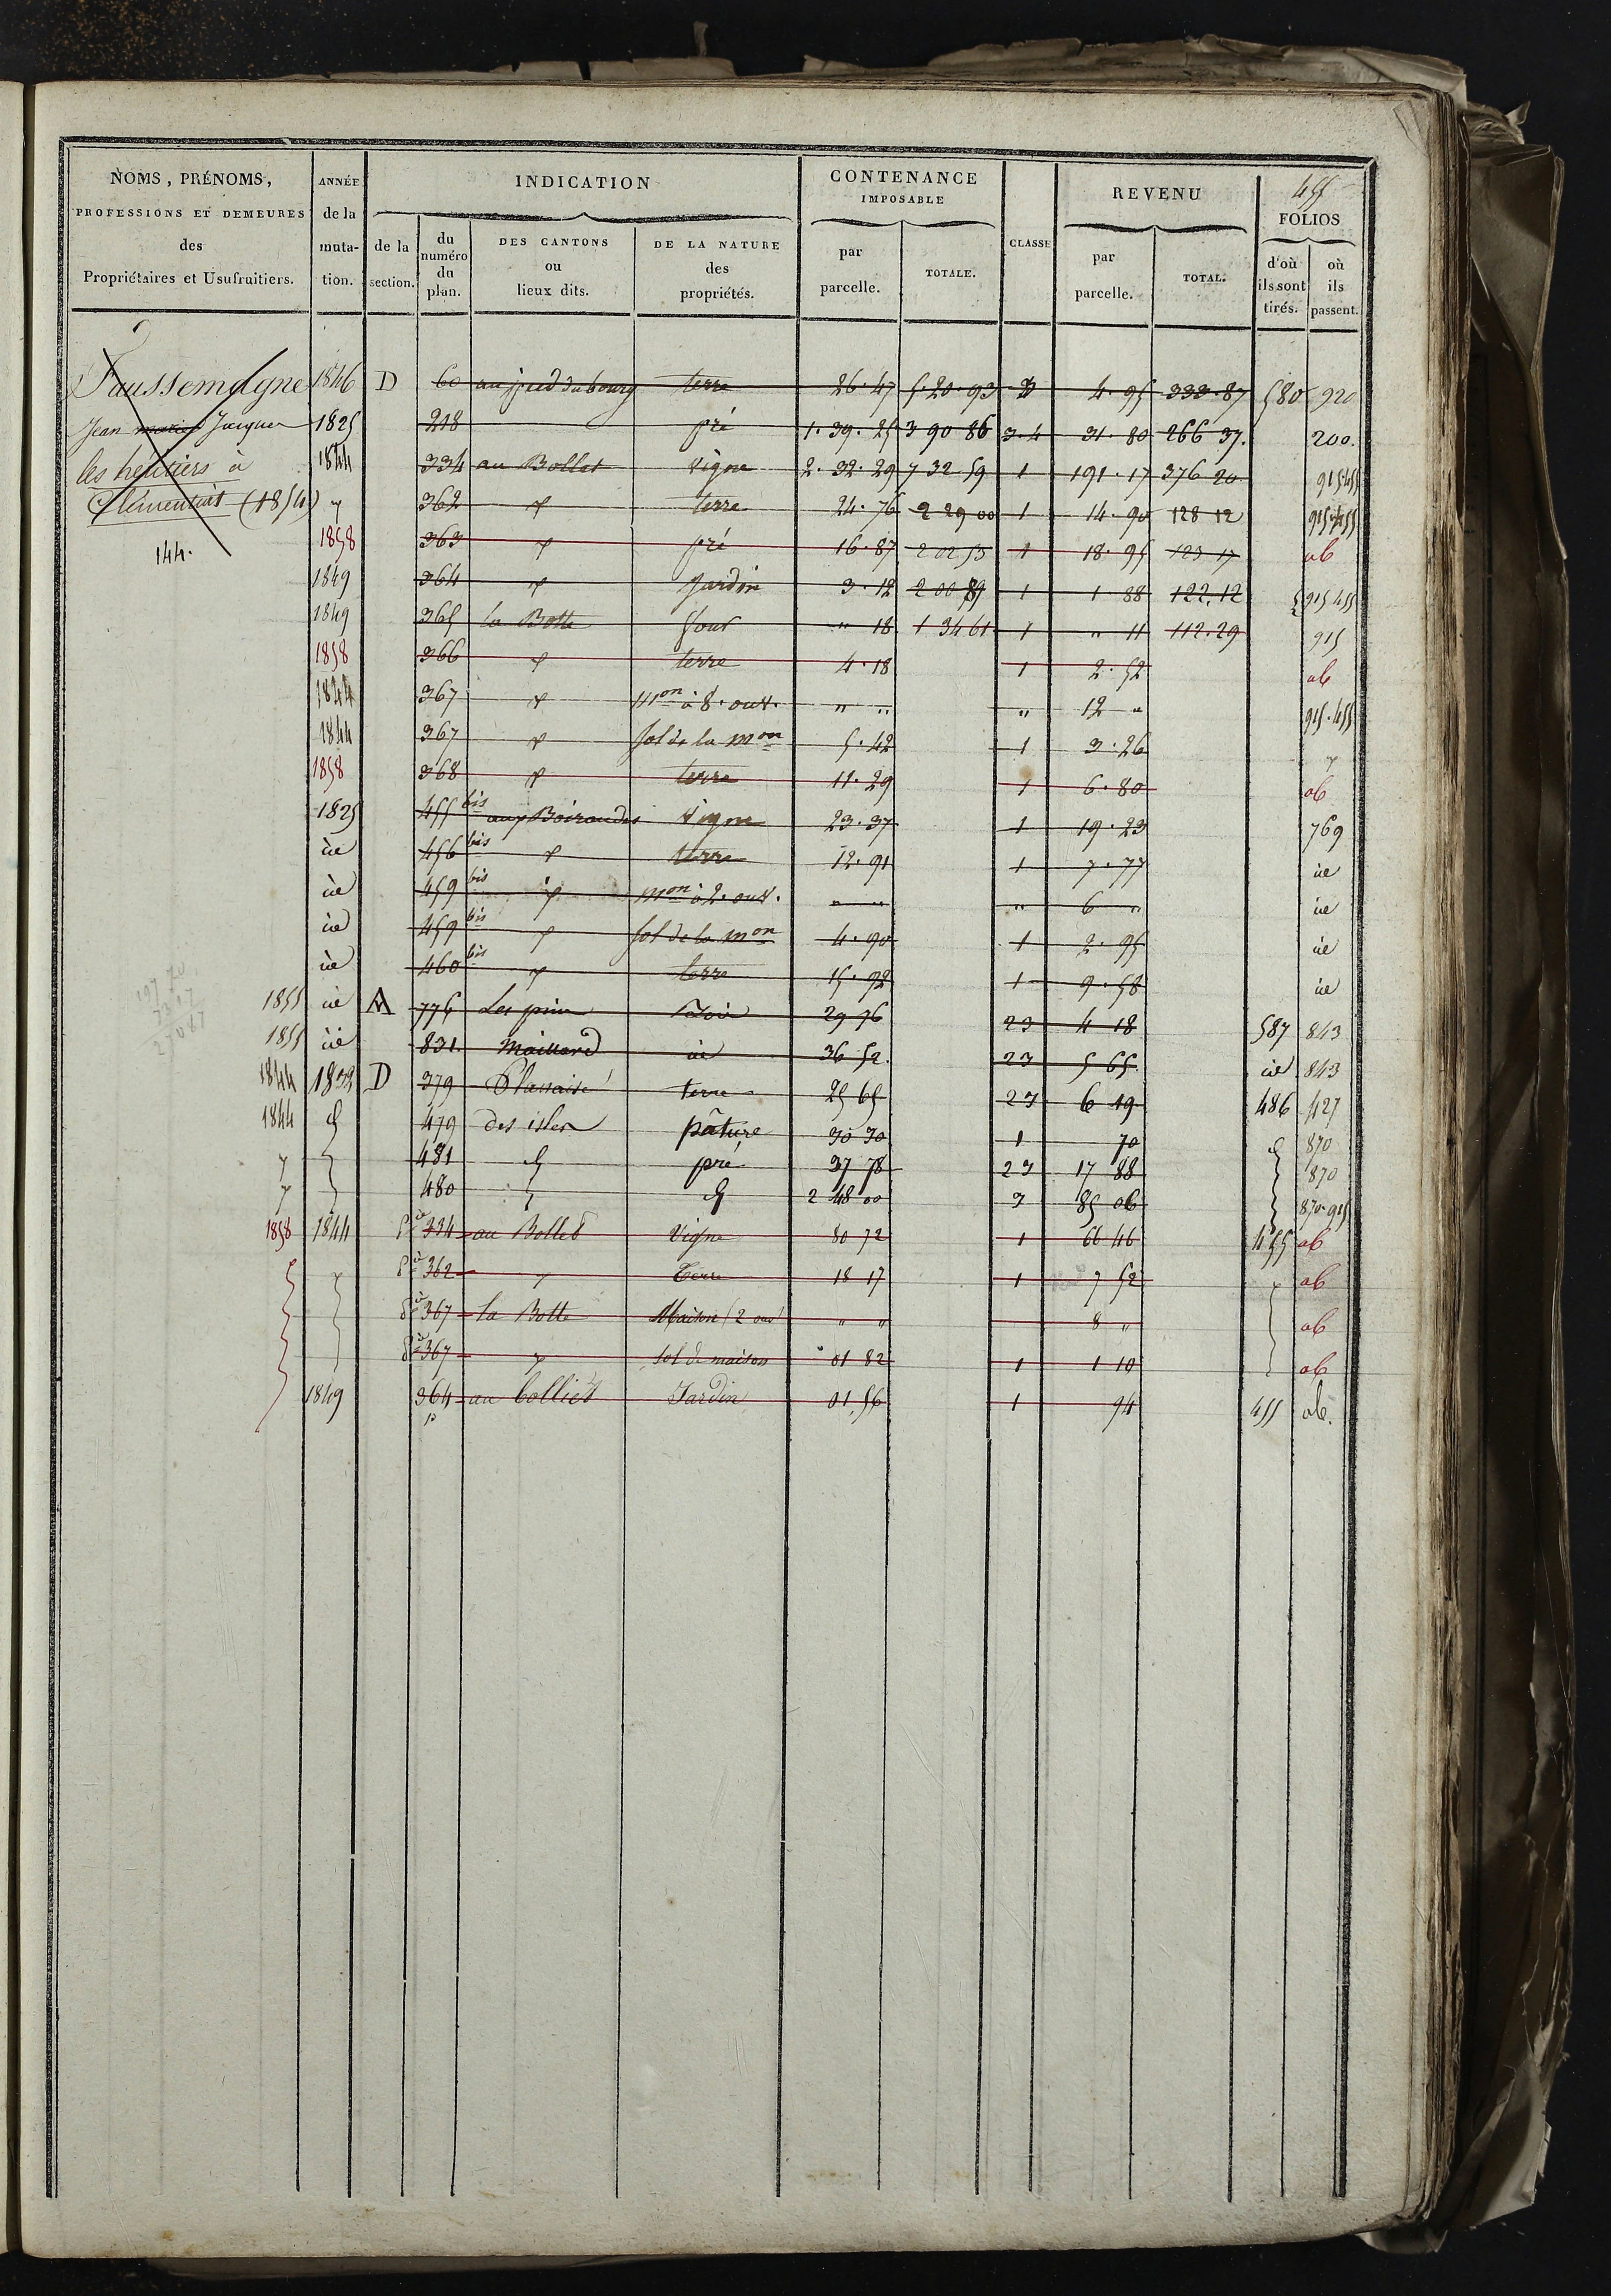 455
NOMS, PRÉNOMS, PROFESSIONS ET DEMEURES des Propriétaires et Usufruitiers.
ANNÉE de la mutation.
INDICATION
de la section.
du numéro du plan.
DES CANTONS ou lieux dits.
DE LA NATURE des propriétés.
CONTENANCE IMPOSABLE
par parcelle.
TOTALE.
CLASSE
REVENU
par parcelle.
TOTAL.
FOLIOS
d'où ils sont tirés.
où ils passent.
Faussemagne
Jean Jacques
les héritiers à
Clémentiat (1854)
144.
1846 D 60 au pied du bourg terre 26.47 5.20.93 3 4.95 333.87 580 920
1825 218 pré 1.39.25 3 90 86 3.4 31.80 266 37. 200.
1844 334 au Bollet vigne 2.32.29 7 32 59 1 191.17 376 20 915.455
" 362 " terre 24.76 2 29 00 1 14.90 128 12 915.455
1858 363 " pré 16.87 2 02 53 1 18.95 123 17 ab
1849 364 " Jardin 3.12 2 00 89 1 1.88 122.12 915 455
1849 365 la Botte four " 18 1 34 61 1 " 11 112.29 915
1858 366 " terre 4.18 1 2.52 ab
1844 367 " Mon à 8. ouv. " " " 12 " 915.455
1844 367 " sol de la mon 5.42 1 3.26 "
1858 368 " terre 11.29 1 6.80 ab
1825 455 bis aux Boiraudes vigne 23.37 1 19.23 769
id 456 bis " terre 12.91 1 7.77 id
id 459 bis " mon à 2. ouv. " " " 6 " id
id 459 bis " sol de la mon 4.90 1 2.95 id
id 460 bis " terre 15.92 1 9.58 id
1855 id A 776 Les pins 29 76 23 4 18 587 843
1855 id 831. Maillard id 36 52. 23 5 65 id 843
1844 1832 D 379 terre 25 65 23 6 19 486 427
1844 d 479 des isles pâture 30 30 1 70 d 870
" 481 d pré 37 78 23 17 88 870
" 480 d 2 48 00 3 85 06 870.915
1858 1844 pie 334 au Bollet Vigne 80 72 1 66 46 455 ab
" pie 362 " Terre 18 17 1 7 52 " ab
pie 367 la Botte Maison (2 ouv) " " 8 " ab
pie 367 " sol de maison " 01 82 1 1 10 ab
1849 364 p au bolliet Jardin 01,56 1 94 455 ab.